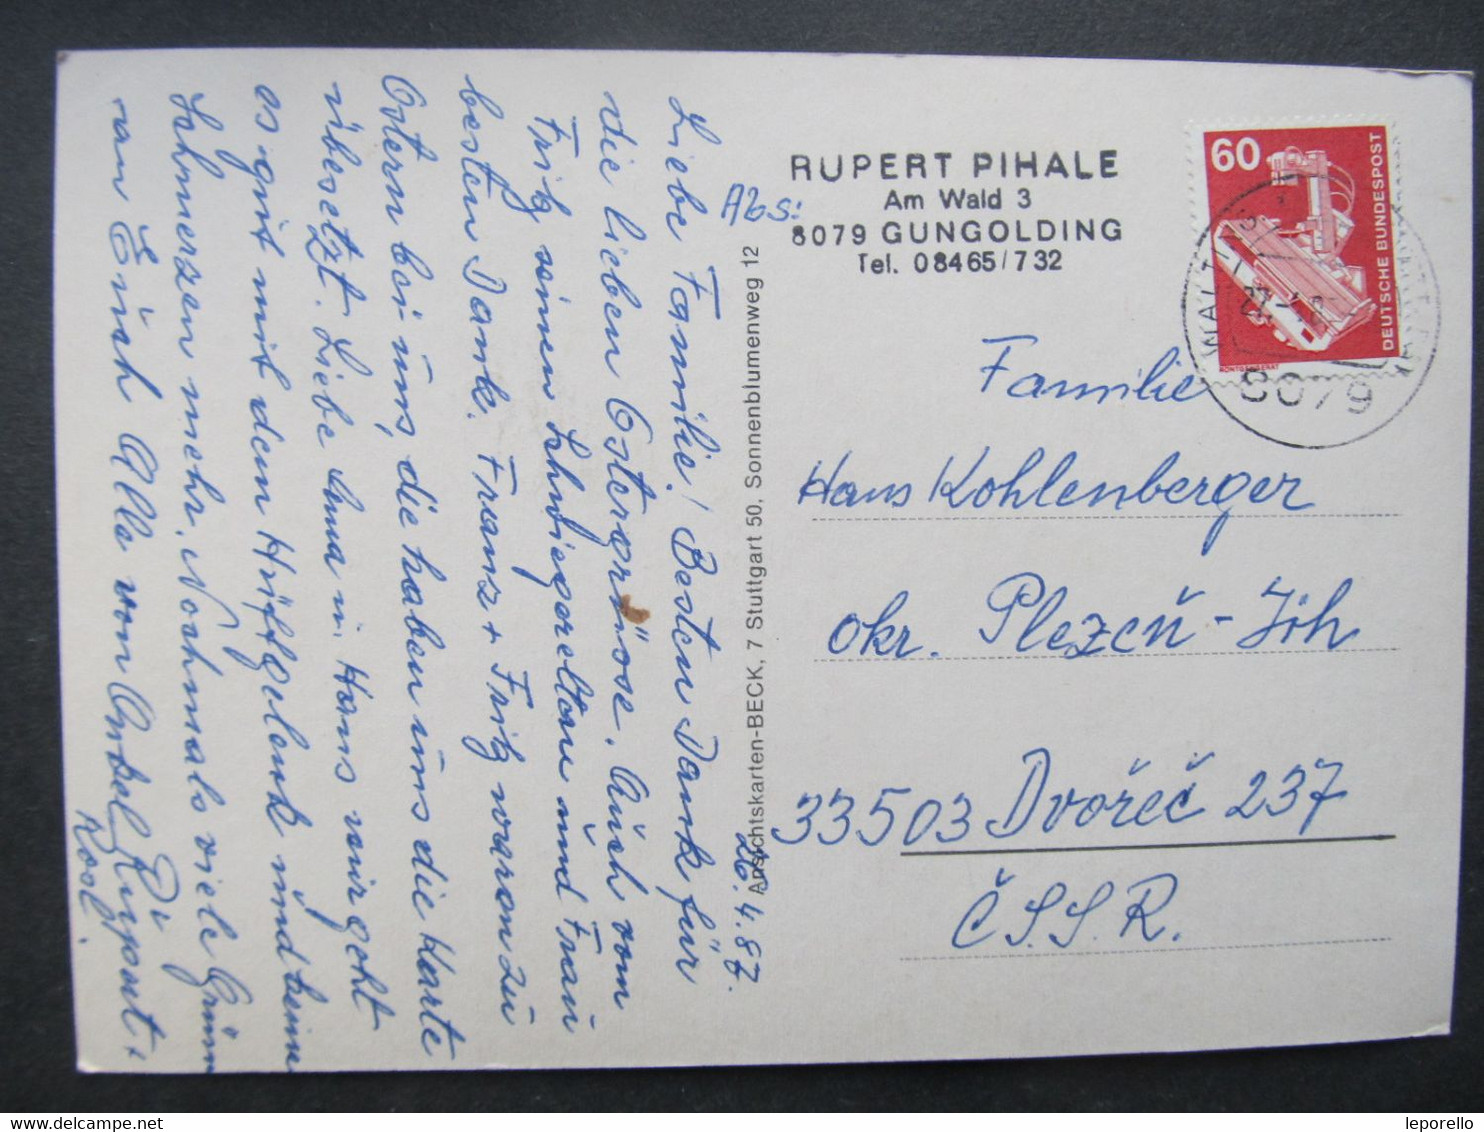 Liebe Familie! Besten Dank für
die lieben Ostergrüsse. Auch vom
Fritz seinen Schwiegereltern und Frau
besten Dank. Franz + Fritz waren zu
Ostern bei uns, die haben uns die Karte
übersetzt. Liebe Anna u. Hans mir geht
es gut mit dem Hüftgelenk und keine
Schmerzen mehr. Nochmals viele Grüße
an Euch Alle von Onkel Rupert +
Di Rosl.
26.4.87.
Ansichtskarten-BECK, 7 Stuttgart 50, Sonnenblumenweg 12
Abs:
RUPERT PIHALE
Am Wald 3
8079 GUNGOLDING
Tel. 08465/732
60
DEUTSCHE BUNDESPOST
RÖNTGENGERÄT
8079
Familie
Hans Kohlenberger
okr. Plezeň-Jih
33503 Dvořeč 237
Č.S.S.R.
leporello